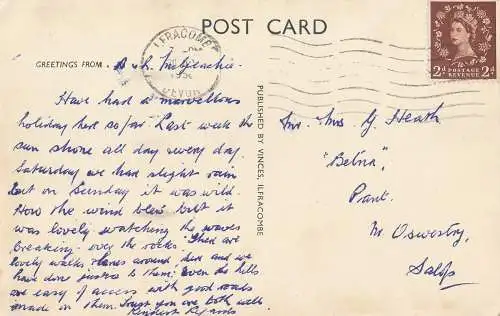 POST CARD
GREETINGS FROM
ILFRACOMBE
DEVON
Have had a marvellous
holiday here so far. Last week the
sun shone all day every day.
Saturday we had slight rain
but on Sunday it was wild.
How the wind blew but it
was lovely watching the waves
breaking over the rocks. There are
lovely walks & lanes around here and we
have done justice to them. Even the hills
are easy of access with good roads
made on them. Trust you are both well.
Kindest Regards
PUBLISHED BY VINCES, ILFRACOMBE
2d POSTAGE REVENUE 2d
Mr. Mrs G. Heath
"
Pant.
Nr Oswestry
Salop